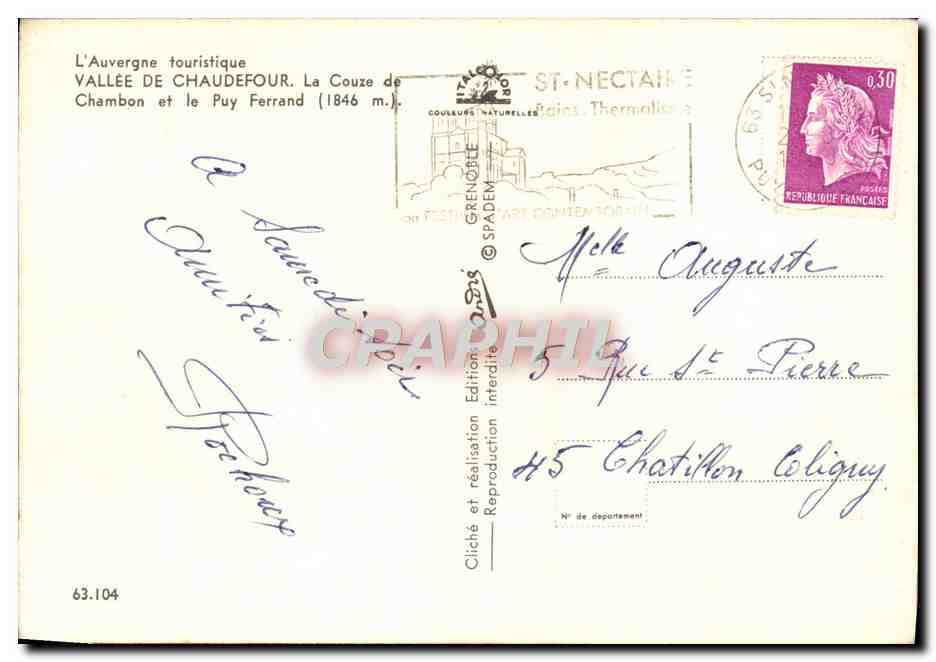 L'Auvergne touristique
VALLÉE DE CHAUDEFOUR. La Couze de
Chambon et le Puy Ferrand (1846 m.).
ITALCOLOR
COULEURS NATURELLES
ST-NECTAIRE
Bains. Thermalisme
FESTIVAL D'ART CONTEMPORAIN
63 ST
PUY
0,30
POSTES
REPUBLIQUE FRANCAISE
a
Samedi soir
Amitiés
Cliché et réalisation Editions andris GRENOBLE
Reproduction interdite © SPADEM
CPARPHIL
Melle Auguste
5 Rue St Pierre
45 Chatillon Coligny
N° de departement
63.104